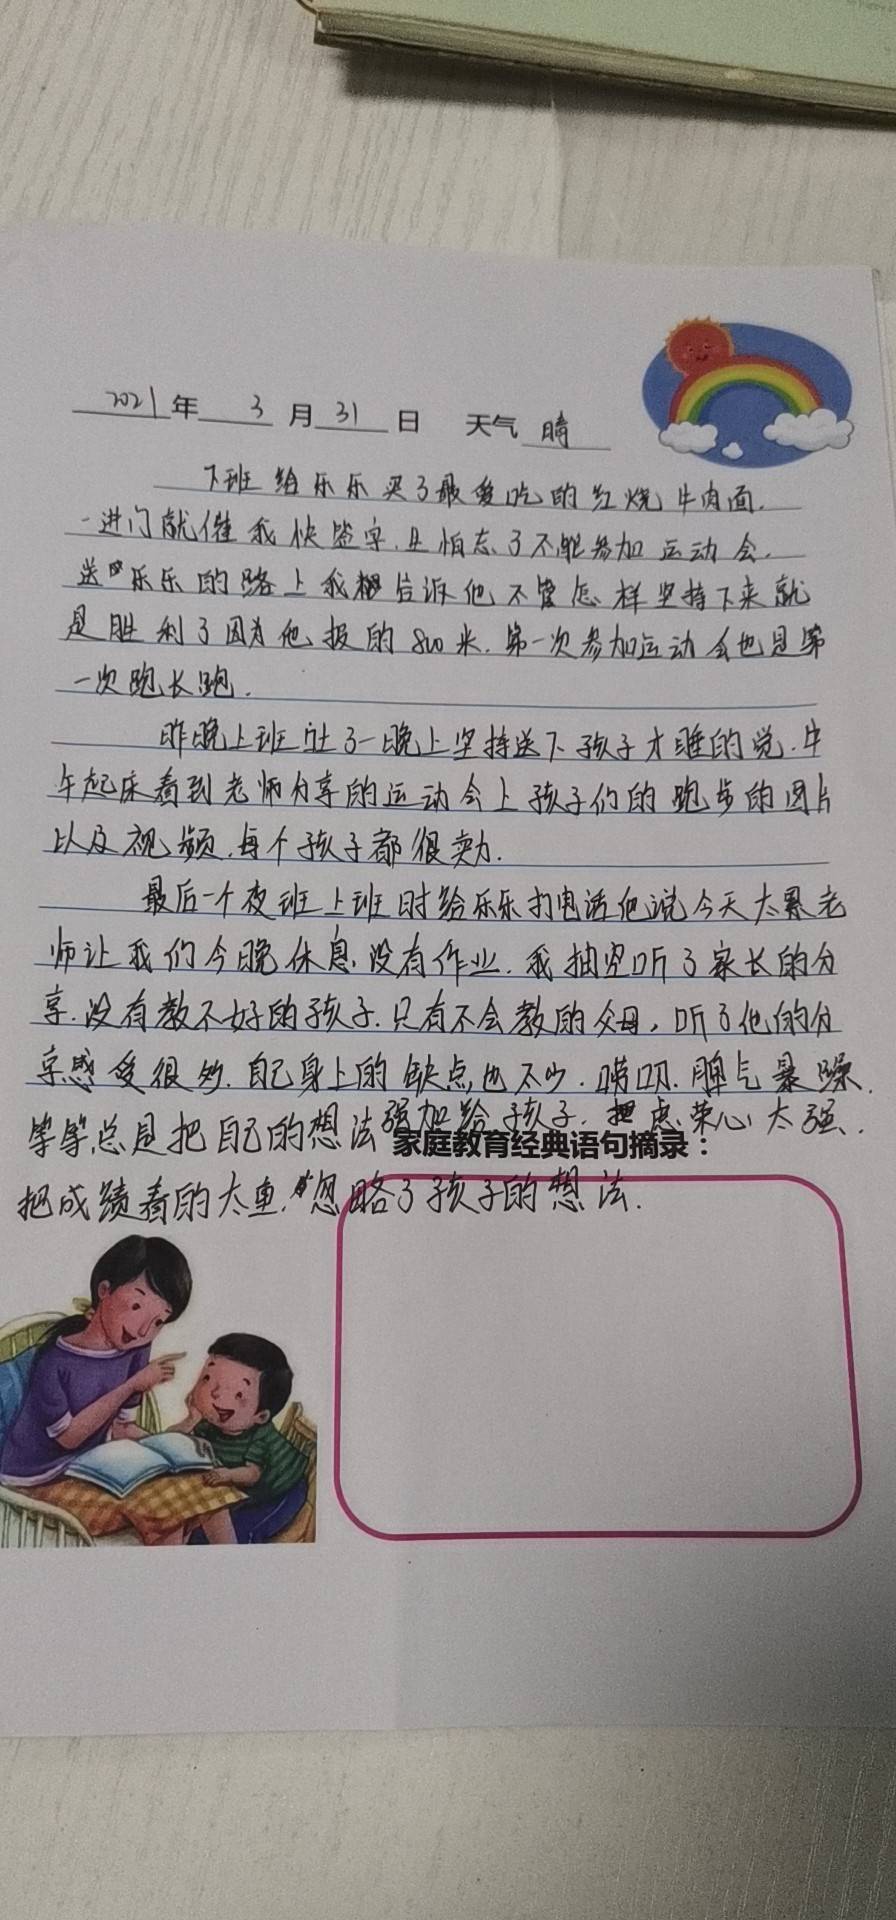 2021年 3月31日 天气 晴
下班给乐乐买了最爱吃的红烧牛肉面.
一进门就催我快签字.生怕忘了不能参加运动会.
送乐乐的路上我告诉他不管怎样坚持下来就
是胜利了因为他报的800米.第一次参加运动会也是第
一次跑长跑.
昨晚上班吐了一晚上坚持送下孩子才睡的觉.中
午起床看到老师分享的运动会上孩子们的跑步的图片
以及视频.每个孩子都很卖力.
最后一个夜班上班时给乐乐打电话他说今天太累老
师让我们今晚休息.没有作业.我抽空听了家长的分
享.没有教不好的孩子.只有不会教的父母,听了他的分
享感受很多.自己身上的缺点也不少.唠叨.脾气暴躁.
等等总是把自己的想法强加给孩子.虚荣心太强.
家庭教育经典语句摘录：
把成绩看的太重.忽略了孩子的想法.